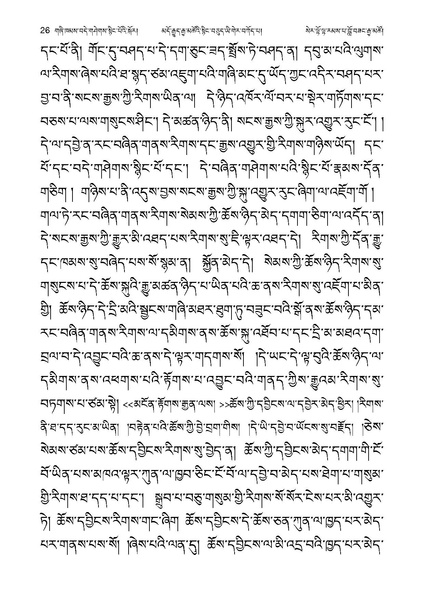 26 གཞི་ཁམས་བདེ་གཤེགས་སྙིང་པོའི་སྐོར། མདོ་རྒྱུད་རྒྱ་མཚོའི་སྙིང་བཅུད་ཡི་གེར་བཀོད་པ། སེར་ལྷོ་ལྷ་རམས་པ་བློ་བཟང་རྒྱ་མཚོ།
དང་པོ་ནི། གོང་དུ་བཤད་པ་དེ་དག་ཅུང་ཟད་སྤྲོས་ཏེ་བཤད་ན། དབུ་མ་པའི་ལུགས་
ལ་རིགས་ཞེས་པའི་ཐ་སྙད་ཙམ་འཇུག་པའི་གཞི་མང་དུ་ཡོད་ཀྱང་འདིར་བཤད་པར་
བྱ་བ་ནི་སངས་རྒྱས་ཀྱི་རིགས་ཡིན་ལ། དེ་ཉིད་འཁོར་ལོ་བར་པ་སྡེར་གཏོགས་དང་
བཅས་པ་ལས་གསུངས་ཤིང་། དེ་མཚན་ཉིད་ནི། སངས་རྒྱས་ཀྱི་སྐུར་འགྱུར་རུང་ངོ་། །
དེ་ལ་དབྱེ་ན་རང་བཞིན་གནས་རིགས་དང་རྒྱས་འགྱུར་གྱི་རིགས་གཉིས་ཡོད། དང་
པོ་དང་བདེ་གཤེགས་སྙིང་པོ་དང་། དེ་བཞིན་གཤེགས་པའི་སྙིང་པོ་རྣམས་དོན་
གཅིག །གཉིས་པ་ནི་འདུས་བྱས་སངས་རྒྱས་ཀྱི་སྐུ་འགྱུར་རུང་ཞིག་ལ་འཇོག་གོ །
གལ་ཏེ་རང་བཞིན་གནས་རིགས་སེམས་ཀྱི་ཆོས་ཉིད་མེད་དགག་ཅིག་ལ་འདོད་ན།
དེ་སངས་རྒྱས་ཀྱི་རྒྱུར་མི་འཐད་པས་རིགས་སུ་ཇི་ལྟར་འཐད་དེ། རིགས་ཀྱི་དོན་རྒྱུ་
དང་ཁམས་སུ་བཞེད་པས་སོ་སྙམ་ན། སྐྱོན་མེད་དེ། སེམས་ཀྱི་ཆོས་ཉིད་རིགས་སུ་
གསུངས་པ་དེ་ཆོས་སྐུའི་རྒྱུ་མཚན་ཉིད་པ་ཡིན་པའི་ཆ་ནས་རིགས་སུ་འཇོག་པ་མིན་
གྱི། ཆོས་ཉིད་དེ་དྲི་མའི་སྦྱངས་གཞི་མཐར་ཐུག་ཏུ་བཟུང་བའི་སྒོ་ནས་ཆོས་ཉིད་དམ་
རང་བཞིན་གནས་རིགས་ལ་དམིགས་ནས་ཆོས་སྐུ་འཐོབ་པ་དང་དྲི་མ་མཐའ་དག་
བྲལ་བ་དེ་འབྱུང་བའི་ཆ་ནས་དེ་ལྟར་གདགས་སོ། །དེ་ཡང་དེ་ལྟ་བུའི་ཆོས་ཉིད་ལ་
དམིགས་ནས་འཕགས་པའི་རྟོགས་པ་འབྱུང་བའི་གནད་ཀྱིས་རྒྱུའམ་རིགས་སུ་
བཏགས་པ་ཙམ་སྟེ། <<མངོན་རྟོགས་རྒྱན་ལས། >>ཆོས་ཀྱི་དབྱིངས་ལ་དབྱེར་མེད་ཕྱིར། །རིགས་
ནི་ཐ་དད་རུང་མ་ཡིན། །བརྟེན་པའི་ཆོས་ཀྱི་བྱེ་བྲག་གིས། །དེ་ཡི་དབྱེ་བ་ཡོངས་སུ་བརྗོད། །ཅེས་
སེམས་ཙམ་པས་ཆོས་དབྱིངས་རིགས་སུ་བྱེད་ན། ཆོས་ཀྱི་དབྱིངས་མེད་དགག་གི་ངོ་
བོ་ཡིན་པས་མཁའ་ལྟར་ཀུན་ལ་ཁྱབ་ཅིང་ངོ་བོ་ལ་དབྱེ་བ་མེད་པས་ཐེག་པ་གསུམ་
གྱི་རིགས་ཐ་དད་པ་དང་། སྒྲུབ་པ་བཅུ་གསུམ་གྱི་རིགས་སོ་སོར་ངེས་པར་མི་འགྱུར་
ཏེ། ཆོས་དབྱིངས་རིགས་གང་ཞིག ཆོས་དབྱིངས་དེ་ཆོས་ཅན་ཀུན་ལ་ཁྱད་པར་མེད་
པར་གནས་པས་སོ། །ཞེས་པའི་ལན་དུ། ཆོས་དབྱིངས་ལ་མི་འདྲ་བའི་ཁྱད་པར་མེད་